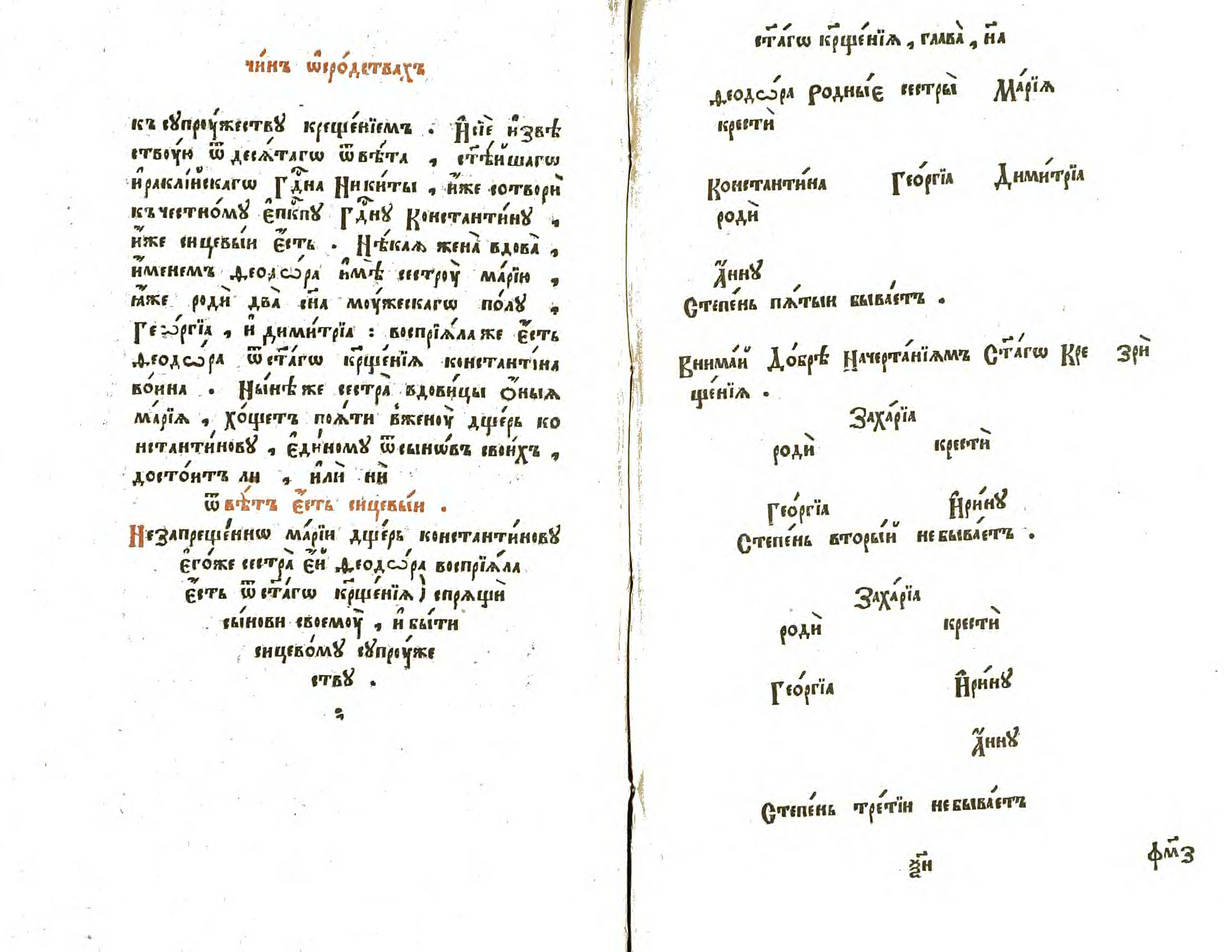 чи́нъ ѡ҆сро́дствахъ
къ сꙋпрꙋ́жествꙋ креще́нїемъ . И҆ сїѐ и҆звѣ
ствꙋ́ю ѿ десѧ́тагѡ ѿвѣ́та , ст҃ѣ́йшагѡ
и҆раклі́йскагѡ Гдⷭ҇на Ники́ты , и҆́же сотворѝ
къ честно́мꙋ Е҆пⷭ҇кпꙋ Гдⷭ҇нꙋ Константи́нꙋ ,
и҆́же сицевы́и є҆́сть . Нѣ́каѧ жена̀ вдова̀ ,
и҆́менемъ Ѳеодѡ́ра и҆мѣ̀ сестрꙋ̀ марі́ю ,
ꙗ҆́же родѝ два̀ сн҃а мꙋ́жескагѡ по́лꙋ ,
Геѡ́ргїа , и҆ дими́трїа : воспрїѧ́ла же є҆́сть
Ѳеодѡ́ра ѿ ст҃а́гѡ крⷭ҇ще́нїѧ константі́на
во́ина . Ны́нѣ же сестра̀ вдови́цы ѻ҆́ныѧ
ма́рїѧ , хо́щетъ поѧ́ти в̾женꙋ̀ дще́рь ко
нстанти́новꙋ , є҆ди́номꙋ ѿ сынѡ́въ свои́хъ ,
досто́итъ ли , и҆лѝ нѝ
ѿвѣ́тъ є҆́сть сицевы́и .
Незапреще́ннѡ ма́рїи дще́рь константи́новꙋ
є҆го́же сестра̀ є҆ѝ Ѳеодѡ́ра воспрїѧ́ла
є҆́сть ѿ ст҃а́гѡ крⷭ҇ще́нїѧ ) спрѧщѝ
сы́нови своемꙋ̀ , и҆ бы́ти
сицево́мꙋ сꙋпрꙋ́же
ствꙋ .
ст҃а́гѡ крⷭ҇ще́нїѧ , глава̀ , н҃а
Ѳеодѡ́ра Родны́є сестры̀ Ма́рїѧ
крестѝ
Константи́на Гео́ргїа Дими́трїа
родѝ
А҆́ннꙋ
Степе́нь пѧ́тыи быва́етъ .
Внима́й До́брѣ Начерта́нїямъ Ст҃а́гѡ Кре зрѝ
ще́нїѧ .
Заха́рїа
родѝ крестѝ
Гео́ргїа И҆ри́нꙋ
Степе́нь вторы́й не быва́етъ .
Заха́рїа
родѝ крестѝ
Гео́ргїа И҆ри́нꙋ
А҆́ннꙋ
Степе́нь тре́тїи не быва́етъ
фм҃з